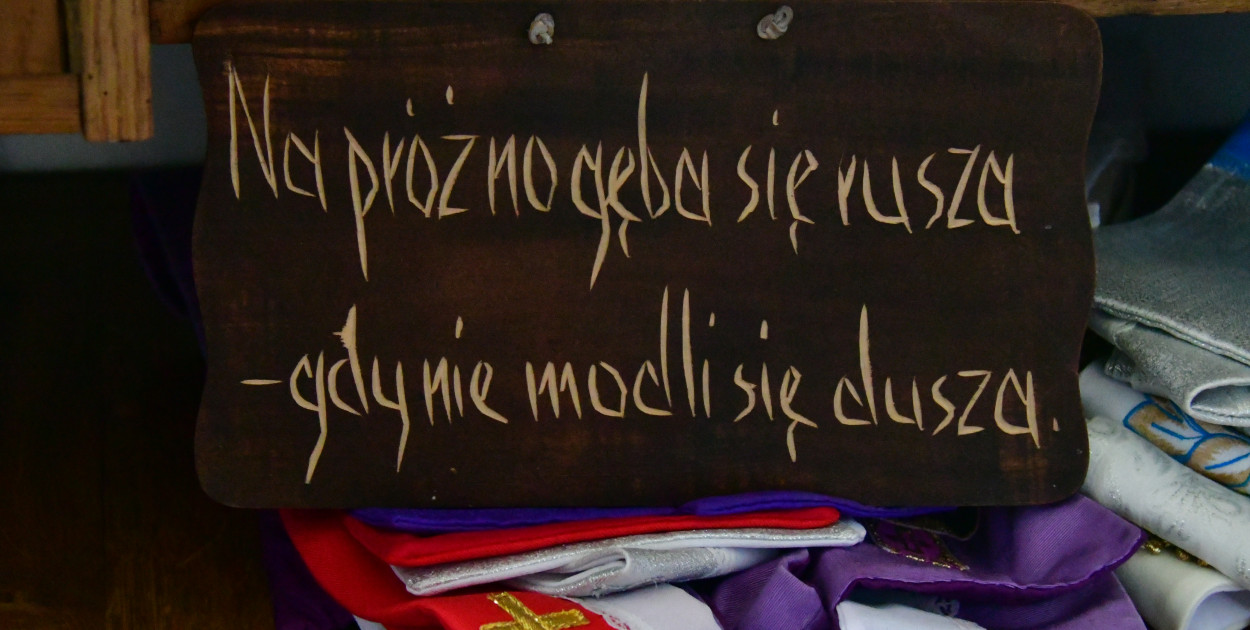 Na próżno gęba się rusza
–gdy nie modli się dusza.